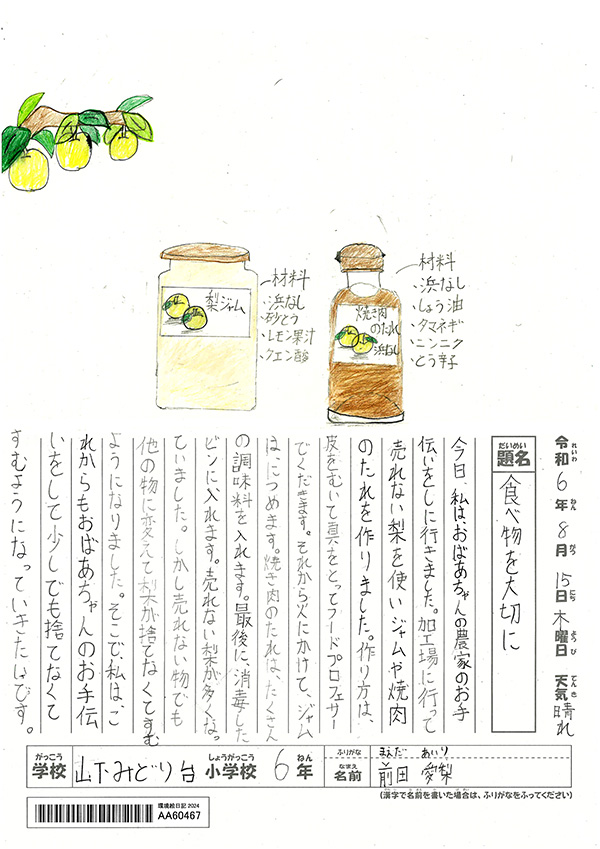 梨ジャム
材料
浜なし
砂とう
レモン果汁
クエン酸
焼き肉
のたれ
浜なし
材料
浜なし
しょう油
タマネギ
ニンニク
とう辛子
令和6年8月15日木曜日 天気晴れ
れいわ ねん がつ にち ようび てんき
だいめい
題名 食べ物を大切に
今日、私は、おばあちゃんの農家のお手
伝いをしに行きました。加工場に行って
売れない梨を使いジャムや焼肉
のたれを作りました。作り方は、
皮をむいて真をとってフードプロフェサー
でくだきます。それから火にかけて、ジャム
は、につめます。焼き肉のたれは、たくさん
の調味料を入れます。最後に、消毒した
ビンに入れます。売れない梨が多くなっ
ていました。しかし売れない物でも
他の物に変えて梨が捨てなくてすむ
ようになりました。そこで、私は、こ
れからもおばあちゃんのお手伝
いをして少しでも捨てなくて
すむようになっていきたいです。
がっこう しょうがっこう ねん
学校 山下みどり台 小学校 6年
ふりがな まえだ あいり
なまえ
名前 前田 愛梨
(漢字で名前を書いた場合は、ふりがなをふってください)
環境絵日記 2024
AA60467